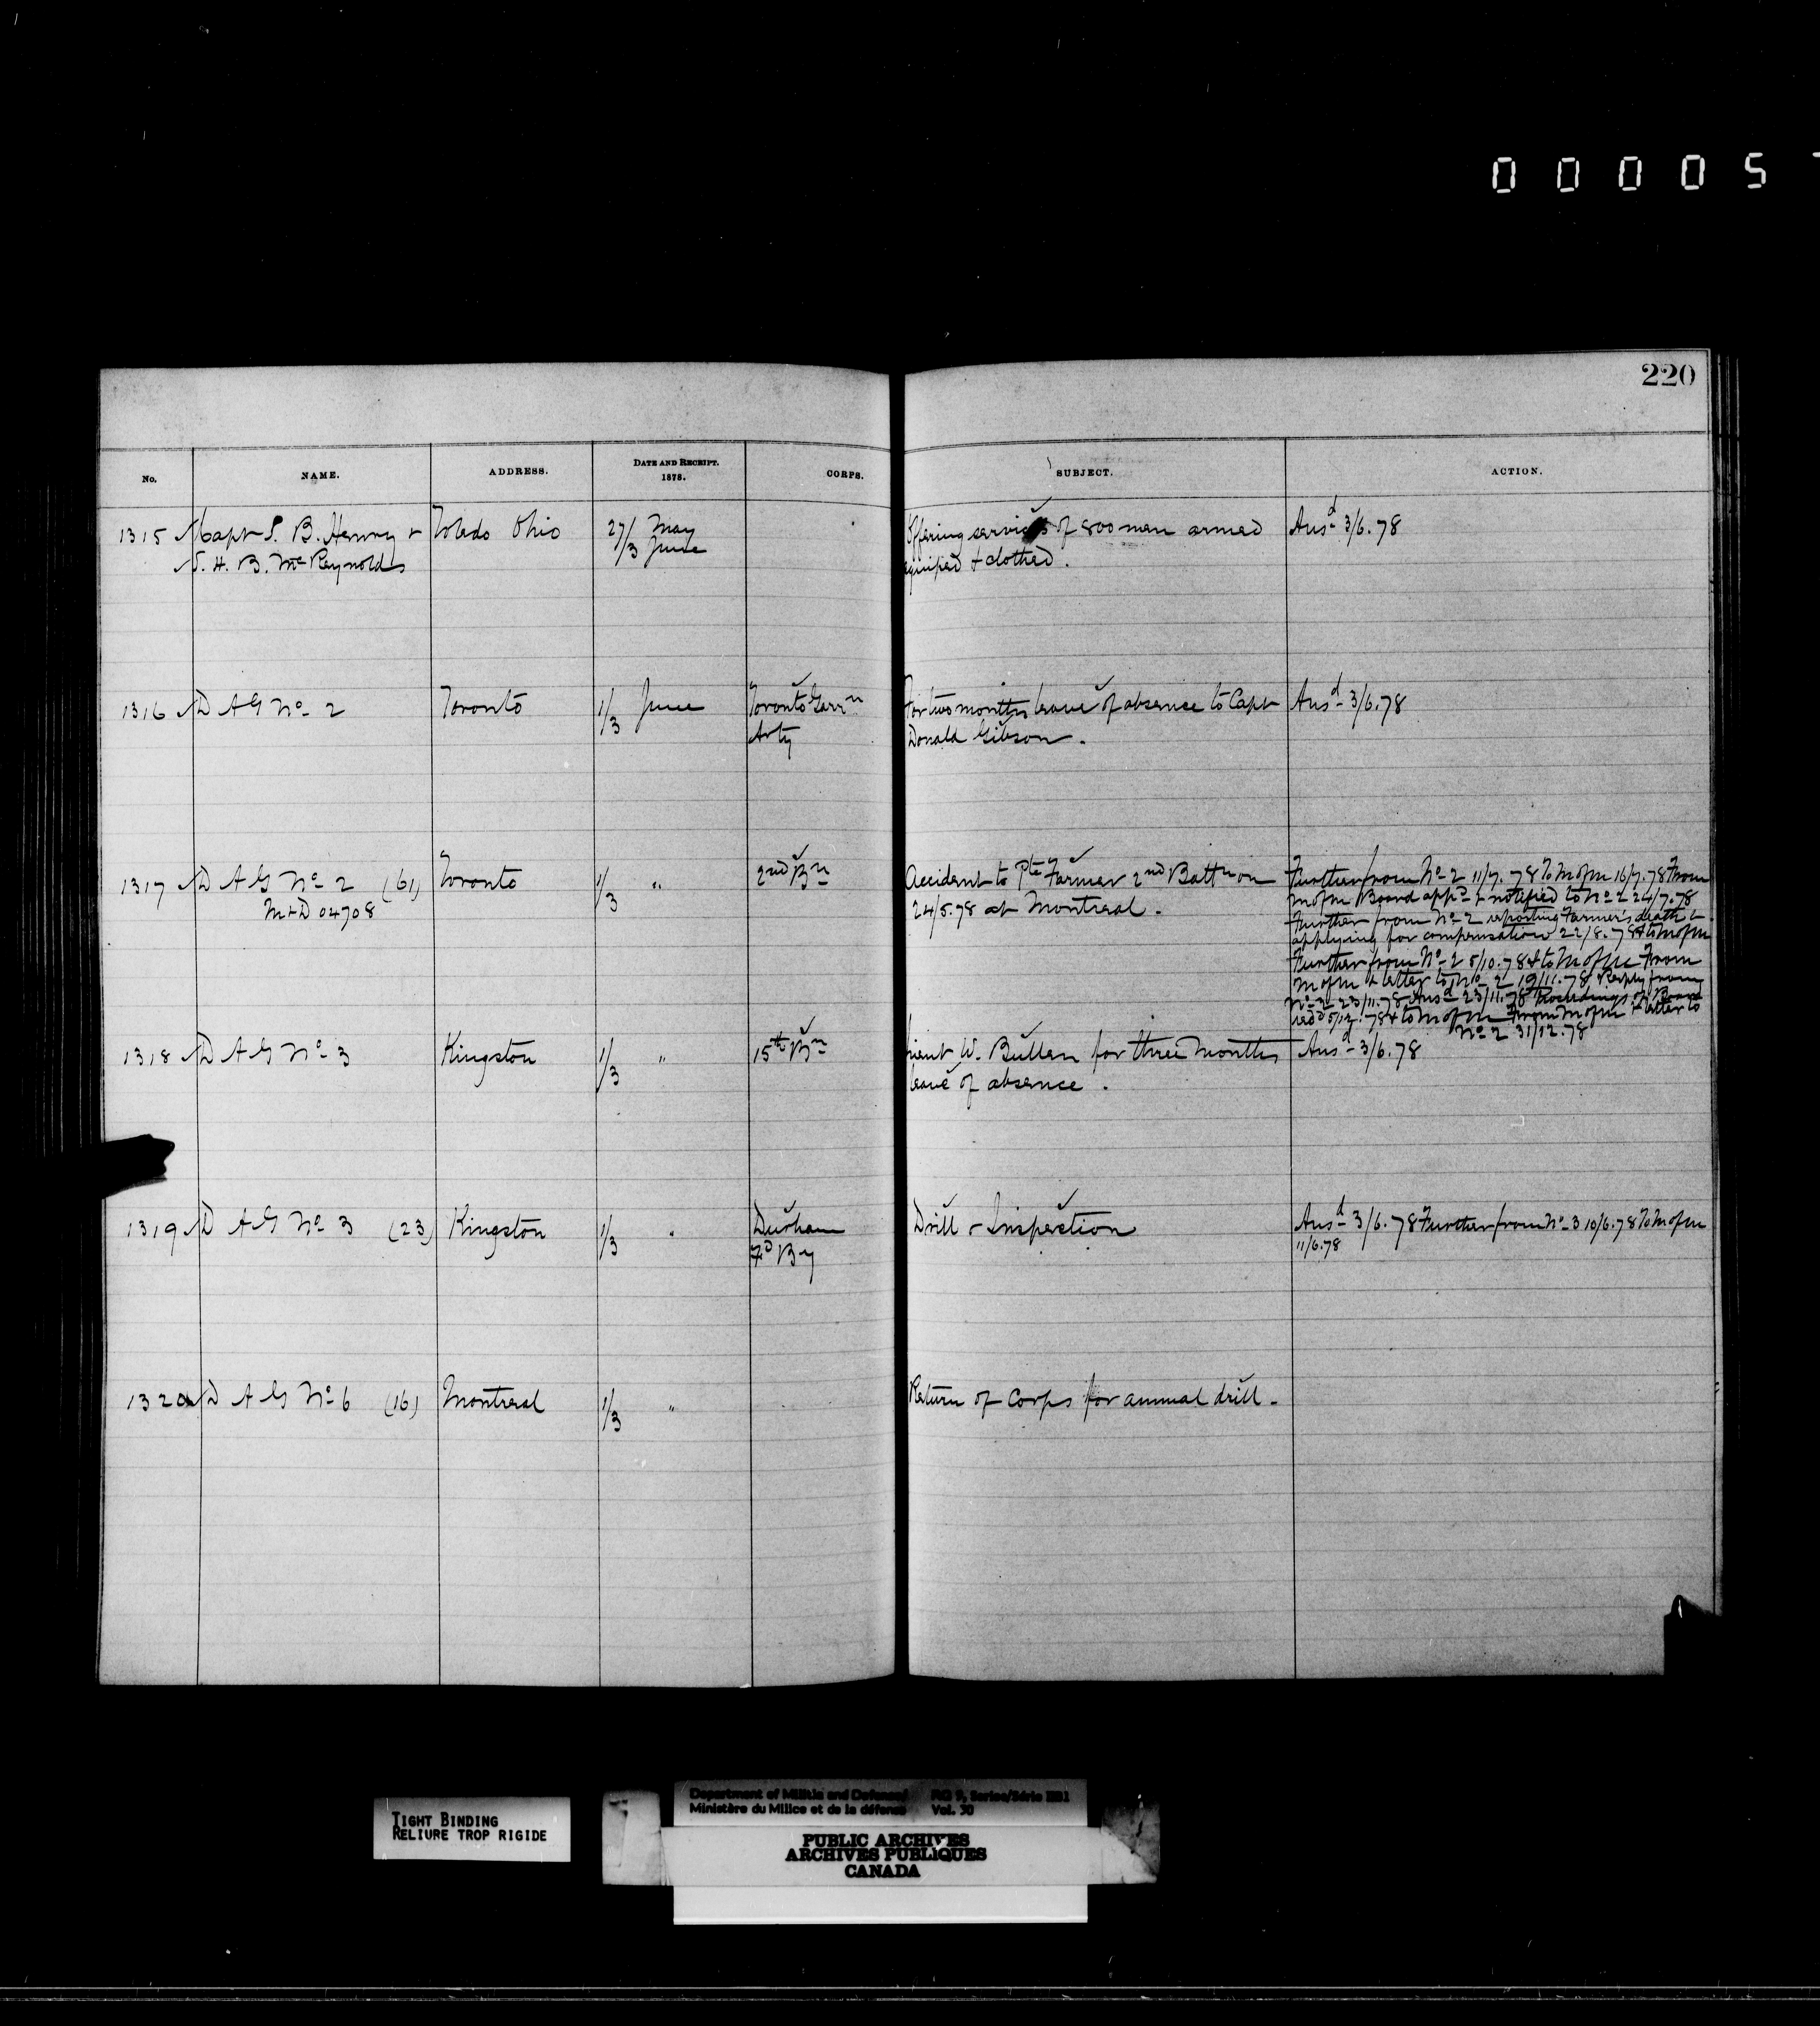 00005
220
No. NAME. ADDRESS. DATE AND RECEIPT. 1878. CORPS. SUBJECT. ACTION.
1315 Capt S. B. Henry + Toledo Ohio 27/3 May June Offering services of 800 men armed Ansd 3/6.78
S. H. B. McReynolds equiped + clothed.
1316 D A G No 2 Toronto 1/3 June Toronto Garrn For two months leave of absence to Capt Ansd 3/6.78
Arty Donald Gibson.
1317 D A G No 2 (61) Toronto 1/3 " 2nd Bn Accident to Pte Farmer 2nd Battn on Further from No 2 11/7.78 To M of M 16/7.78 From
M+D 04708 24/5.78 at Montreal. M of M Board appd + notified to No 2 24/7.78
Further from No 2 reporting Farmer's death +
applying for compensation 22/8.78 + to M of M
Further from No 2 5/10.78 + to M of M From
M of M + letter to No 2 19/11.78 Reply from
No 2 23/11.78 Ansd 23/11.78 Proceedings of Board
recd 5/12.78 + to M of M From M of M + letter to
No 2 31/12.78
1318 D A G No 3 Kingston 1/3 " 15th Bn Lieut W. Bullen for three months Ansd 3/6.78
leave of absence.
1319 D A G No 3 (23) Kingston 1/3 " Durham Drill + Inspection Ansd 3/6.78 Further from No 3 10/6.78 To M of M
Fd By 11/6.78
1320 D A G No 6 (16) Montreal 1/3 " Return of Corps for annual drill.
TIGHT BINDING
RELIURE TROP RIGIDE
Department of Militia and Defence/ RG 9, Series/Série IIB1
Ministère du Milice et de la défense Vol. 30
PUBLIC ARCHIVES
ARCHIVES PUBLIQUES
CANADA